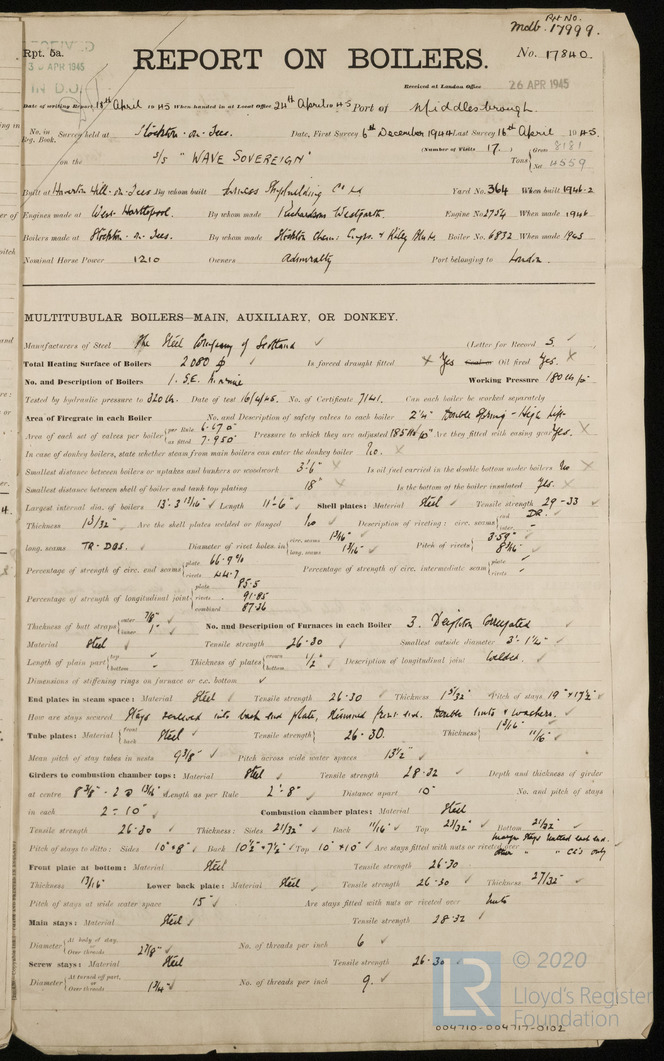 Rpt. No.
Mdb. 17999.
Rpt. 5a.
REPORT ON BOILERS.
No. 17840.
RECEIVED
30 APR 1945
IN D.O.
Received at London Office 26 APR 1945
Date of writing Report 18th April 1945 When handed in at Local Office 24th April 1945 Port of Middlesbrough.
No. in Reg. Book. Survey held at Stockton-on-Tees. Date, First Survey 6th December 1944 Last Survey 16th April 1945.
on the S/S "WAVE SOVEREIGN" (Number of Visits 17.) Tons Gross 8181 Net 4559
Built at Haverton Hill-on-Tees By whom built Furness Shipbuilding Co Ld Yard No. 364 When built 1946-2
Engines made at West Hartlepool. By whom made Richardsons Westgarth. Engine No. 2754 When made 1946
Boilers made at Stockton-on-Tees. By whom made Stockton Chem: Engrs. & Riley Blrs Ld Boiler No. 6832 When made 1945
Nominal Horse Power 1210 Owners Admiralty Port belonging to London.
MULTITUBULAR BOILERS—MAIN, AUXILIARY, OR DONKEY.
Manufacturers of Steel The Steel Company of Scotland (Letter for Record S.
Total Heating Surface of Boilers 2080 Is forced draught fitted Yes Oil fired Yes.
No. and Description of Boilers 1. S.E. Working Pressure 180
Tested by hydraulic pressure to 320 lb. Date of test 16/4/45. No. of Certificate 7141. Can each boiler be worked separately
Area of Firegrate in each Boiler No. and Description of safety valves to each boiler 2½" Double Spring - High Lift
Area of each set of valves per boiler per Rule 6.670 as fitted 7.950 Pressure to which they are adjusted 185 Are they fitted with easing gear Yes.
In case of donkey boilers, state whether steam from main boilers can enter the donkey boiler No.
Smallest distance between boilers or uptakes and bunkers or woodwork 3'-6" Is oil fuel carried in the double bottom under boilers No
Smallest distance between shell of boiler and tank top plating 18" Is the bottom of the boiler insulated Yes.
Largest internal dia. of boilers 13'-3 13/16" Length 11'-6" Shell plates: Material Steel Tensile strength 29-33
Thickness 1 3/32" Are the shell plates welded or flanged No Description of riveting: circ. seams end DR. inter. -
long. seams TR-DBS. Diameter of rivet holes in circ. seams long. seams Pitch of rivets 3.59"
Percentage of strength of circ. end seams plate 66.9% rivets 44.7 Percentage of strength of circ. intermediate seam plate - rivets -
Percentage of strength of longitudinal joint plate 85.5 rivets 91.85 combined 87.36
Thickness of butt straps outer 7/8" inner 1" No. and Description of Furnaces in each Boiler 3. Deighton Corrugated
Material Steel Tensile strength 26-30 Smallest outside diameter 3'-1¼"
Length of plain part top bottom Thickness of plates crown bottom ½" Description of longitudinal joint Welded.
Dimensions of stiffening rings on furnace or c.c. bottom
End plates in steam space: Material Steel Tensile strength 26-30 Thickness 1 5/32" Pitch of stays 19" × 17½"
How are stays secured Stays screwed into back end plate, Double nuts & washers.
Tube plates: Material front back Steel Tensile strength 26-30. Thickness 13/16" 11/16"
Mean pitch of stay tubes in nests 9 3/8" Pitch across wide water spaces 13½"
Girders to combustion chamber tops: Material Steel Tensile strength 28-32 Depth and thickness of girder
at centre 8 3/8" - 2 @ 13/16" Length as per Rule 2'-8" Distance apart 10" No. and pitch of stays
in each 2 - 10" Combustion chamber plates: Material Steel
Tensile strength 26-30 Thickness: Sides 21/32" Back 11/16" Top 21/32" Bottom 21/32"
Pitch of stays to ditto: Sides 10" × 8" Back 10½" × 7½" Top 10" × 10" Are stays fitted with nuts or riveted over margin stays nutted each end. other " " CC's only
Front plate at bottom: Material Steel Tensile strength 26-30
Thickness 13/16" Lower back plate: Material Steel Tensile strength 26-30 Thickness 27/32"
Pitch of stays at wide water space 15" Are stays fitted with nuts or riveted over Nuts
Main stays: Material Steel Tensile strength 28-32
Diameter At body of stay, or Over threads 2 7/8" No. of threads per inch 6
Screw stays: Material Steel Tensile strength 26-30
Diameter At turned off part, or Over threads 1¾" No. of threads per inch 9.
LR
© 2020
Lloyd's Register
Foundation
004710-004717-0102